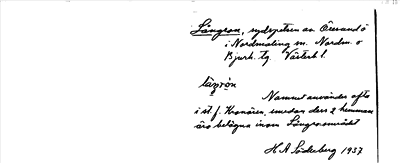 Långron, sydspetsen av Öresund ö
i Nordmaling sn. Nordm. o
Bjurh. tg. Västerb l.
långrón
Namnet användes ofta
i st. f. Kronören, medan dess 2 hemman
äro belägna inom Långronområdet
H.A. Söderberg 1937